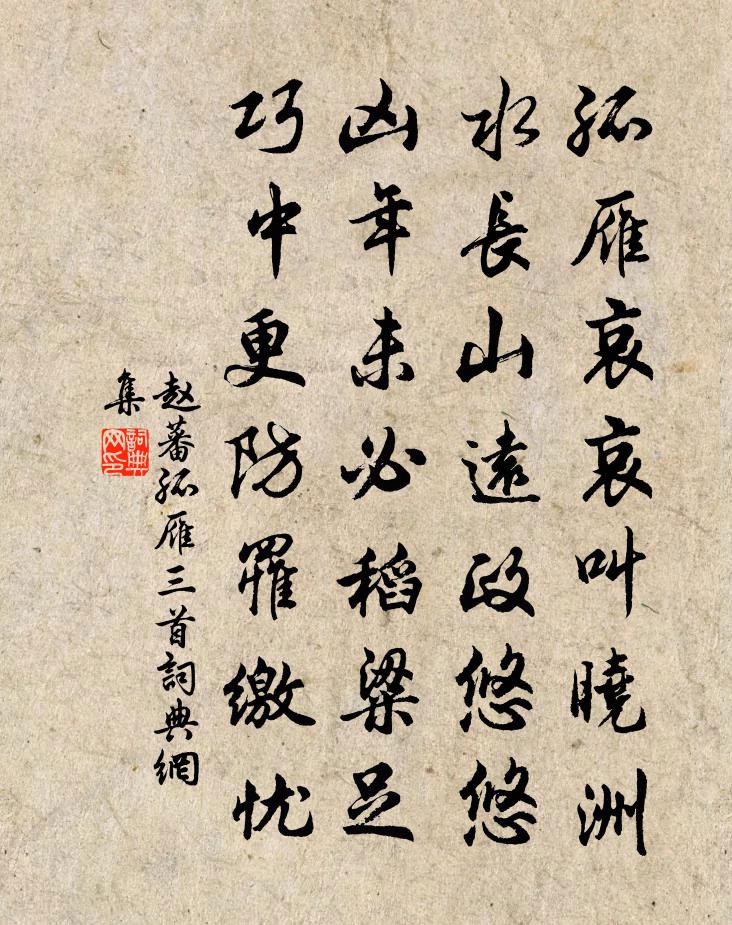 孤雁哀哀叫曉洲
水長山遠政悠悠
凶年未必稻粱足
巧中更防羅繳忧
赵蕃孤雁三首詞典網
集
詞典
网印